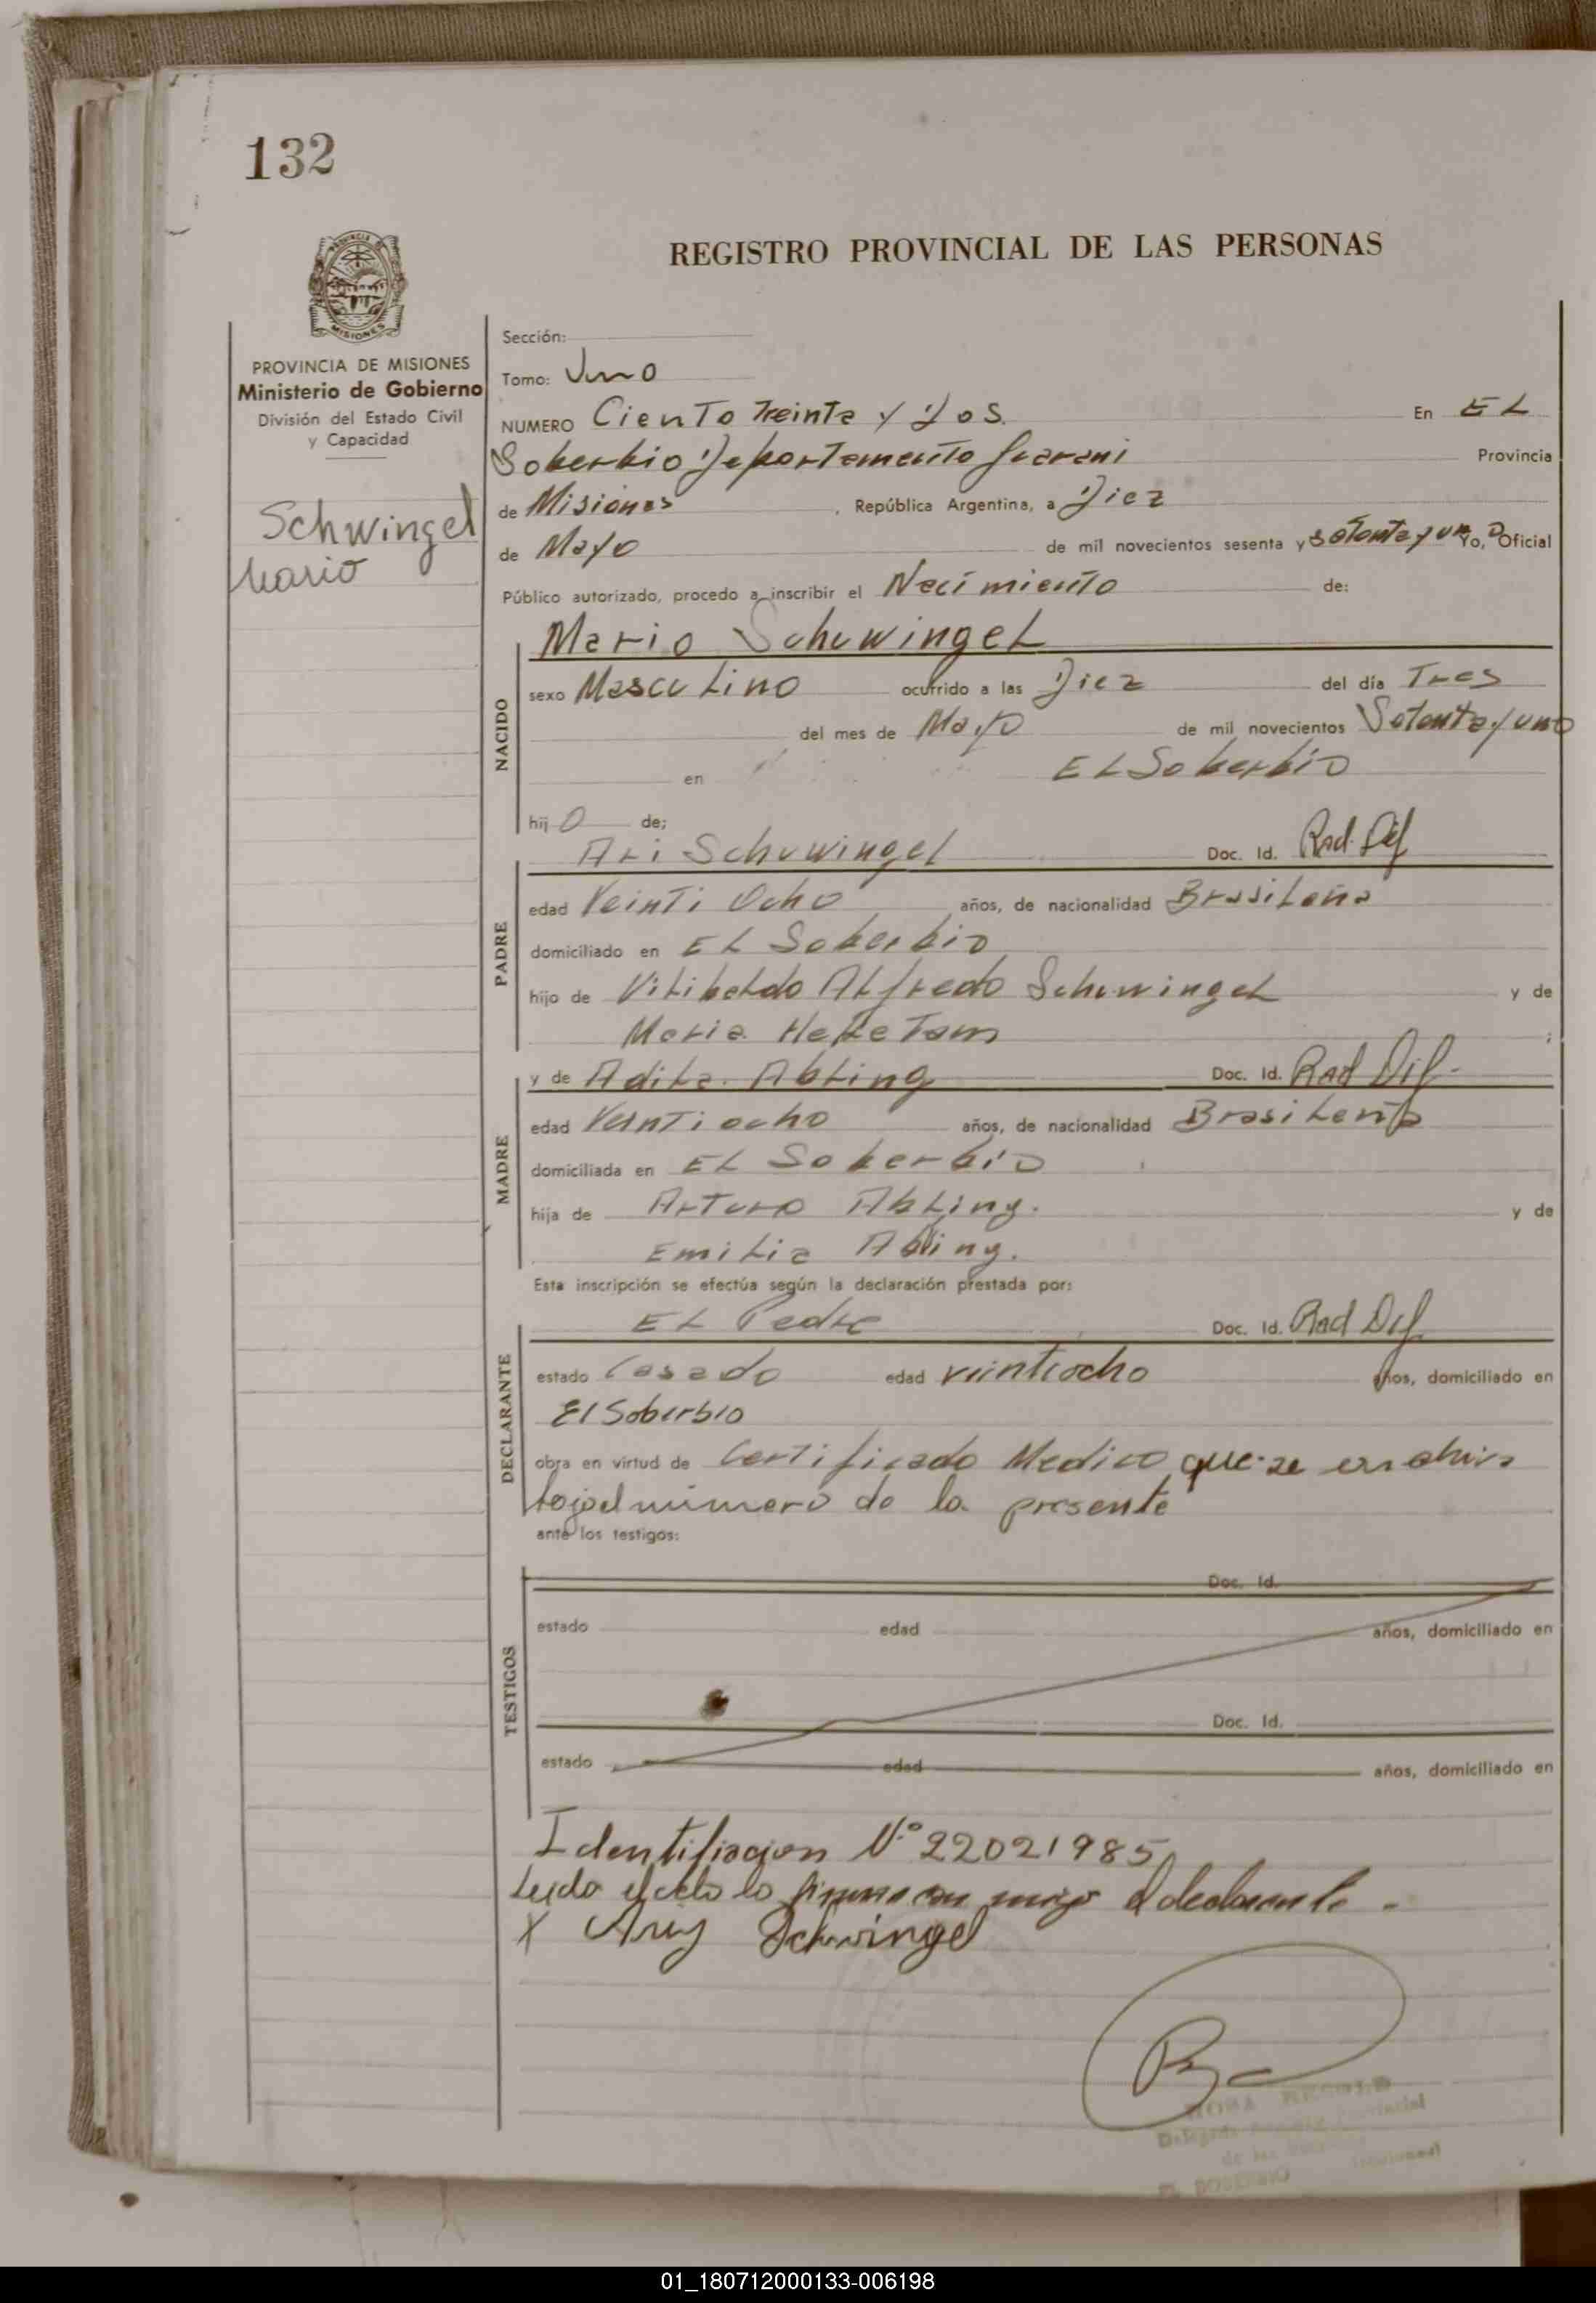 132
REGISTRO PROVINCIAL DE LAS PERSONAS
PROVINCIA DE MISIONES
Ministerio de Gobierno
División del Estado Civil
y Capacidad
Schwingel
Mario
Sección:
Tomo: Uno
NUMERO Ciento Treinta y Dos. En EL
Soberbio Departamento Guarani Provincia
de Misiones, República Argentina, a Diez
de Mayo de mil novecientos sesenta y setenta y uno Yo, Oficial
Público autorizado, procedo a inscribir el Nacimiento de:
NACIDO
Mario Schuwingel
sexo Masculino ocurrido a las Diez del día Tres
del mes de Mayo de mil novecientos Setenta y uno
en EL Soberbio
hijo de;
PADRE
Ari Schuwingel Doc. Id. Rad. Dif
edad Veinti Ocho años, de nacionalidad Brasileña
domiciliado en EL Soberbio
hijo de Vilibaldo Alfredo Schuwingel y de
Maria ;
MADRE
y de Adila Abling Doc. Id. Rad Dif.
edad Veintiocho años, de nacionalidad Brasileña
domiciliada en EL Soberbio
hija de Arturo Abling. y de
Emilia Abling.
Esta inscripción se efectúa según la declaración prestada por:
DECLARANTE
EL Padre Doc. Id. Rad Dif
estado Casado edad veintiocho años, domiciliado en
El Soberbio
obra en virtud de Certificado Medico que se
bajo el número de la presente
ante los testigos:
TESTIGOS
Doc. Id.
estado edad años, domiciliado en
Doc. Id.
estado edad años, domiciliado en
Identifiacion N.º 22021985
Leida el acta la firma con migo el declarante.
X Ary Schwingel
EL SOBERBIO
01_180712000133-006198